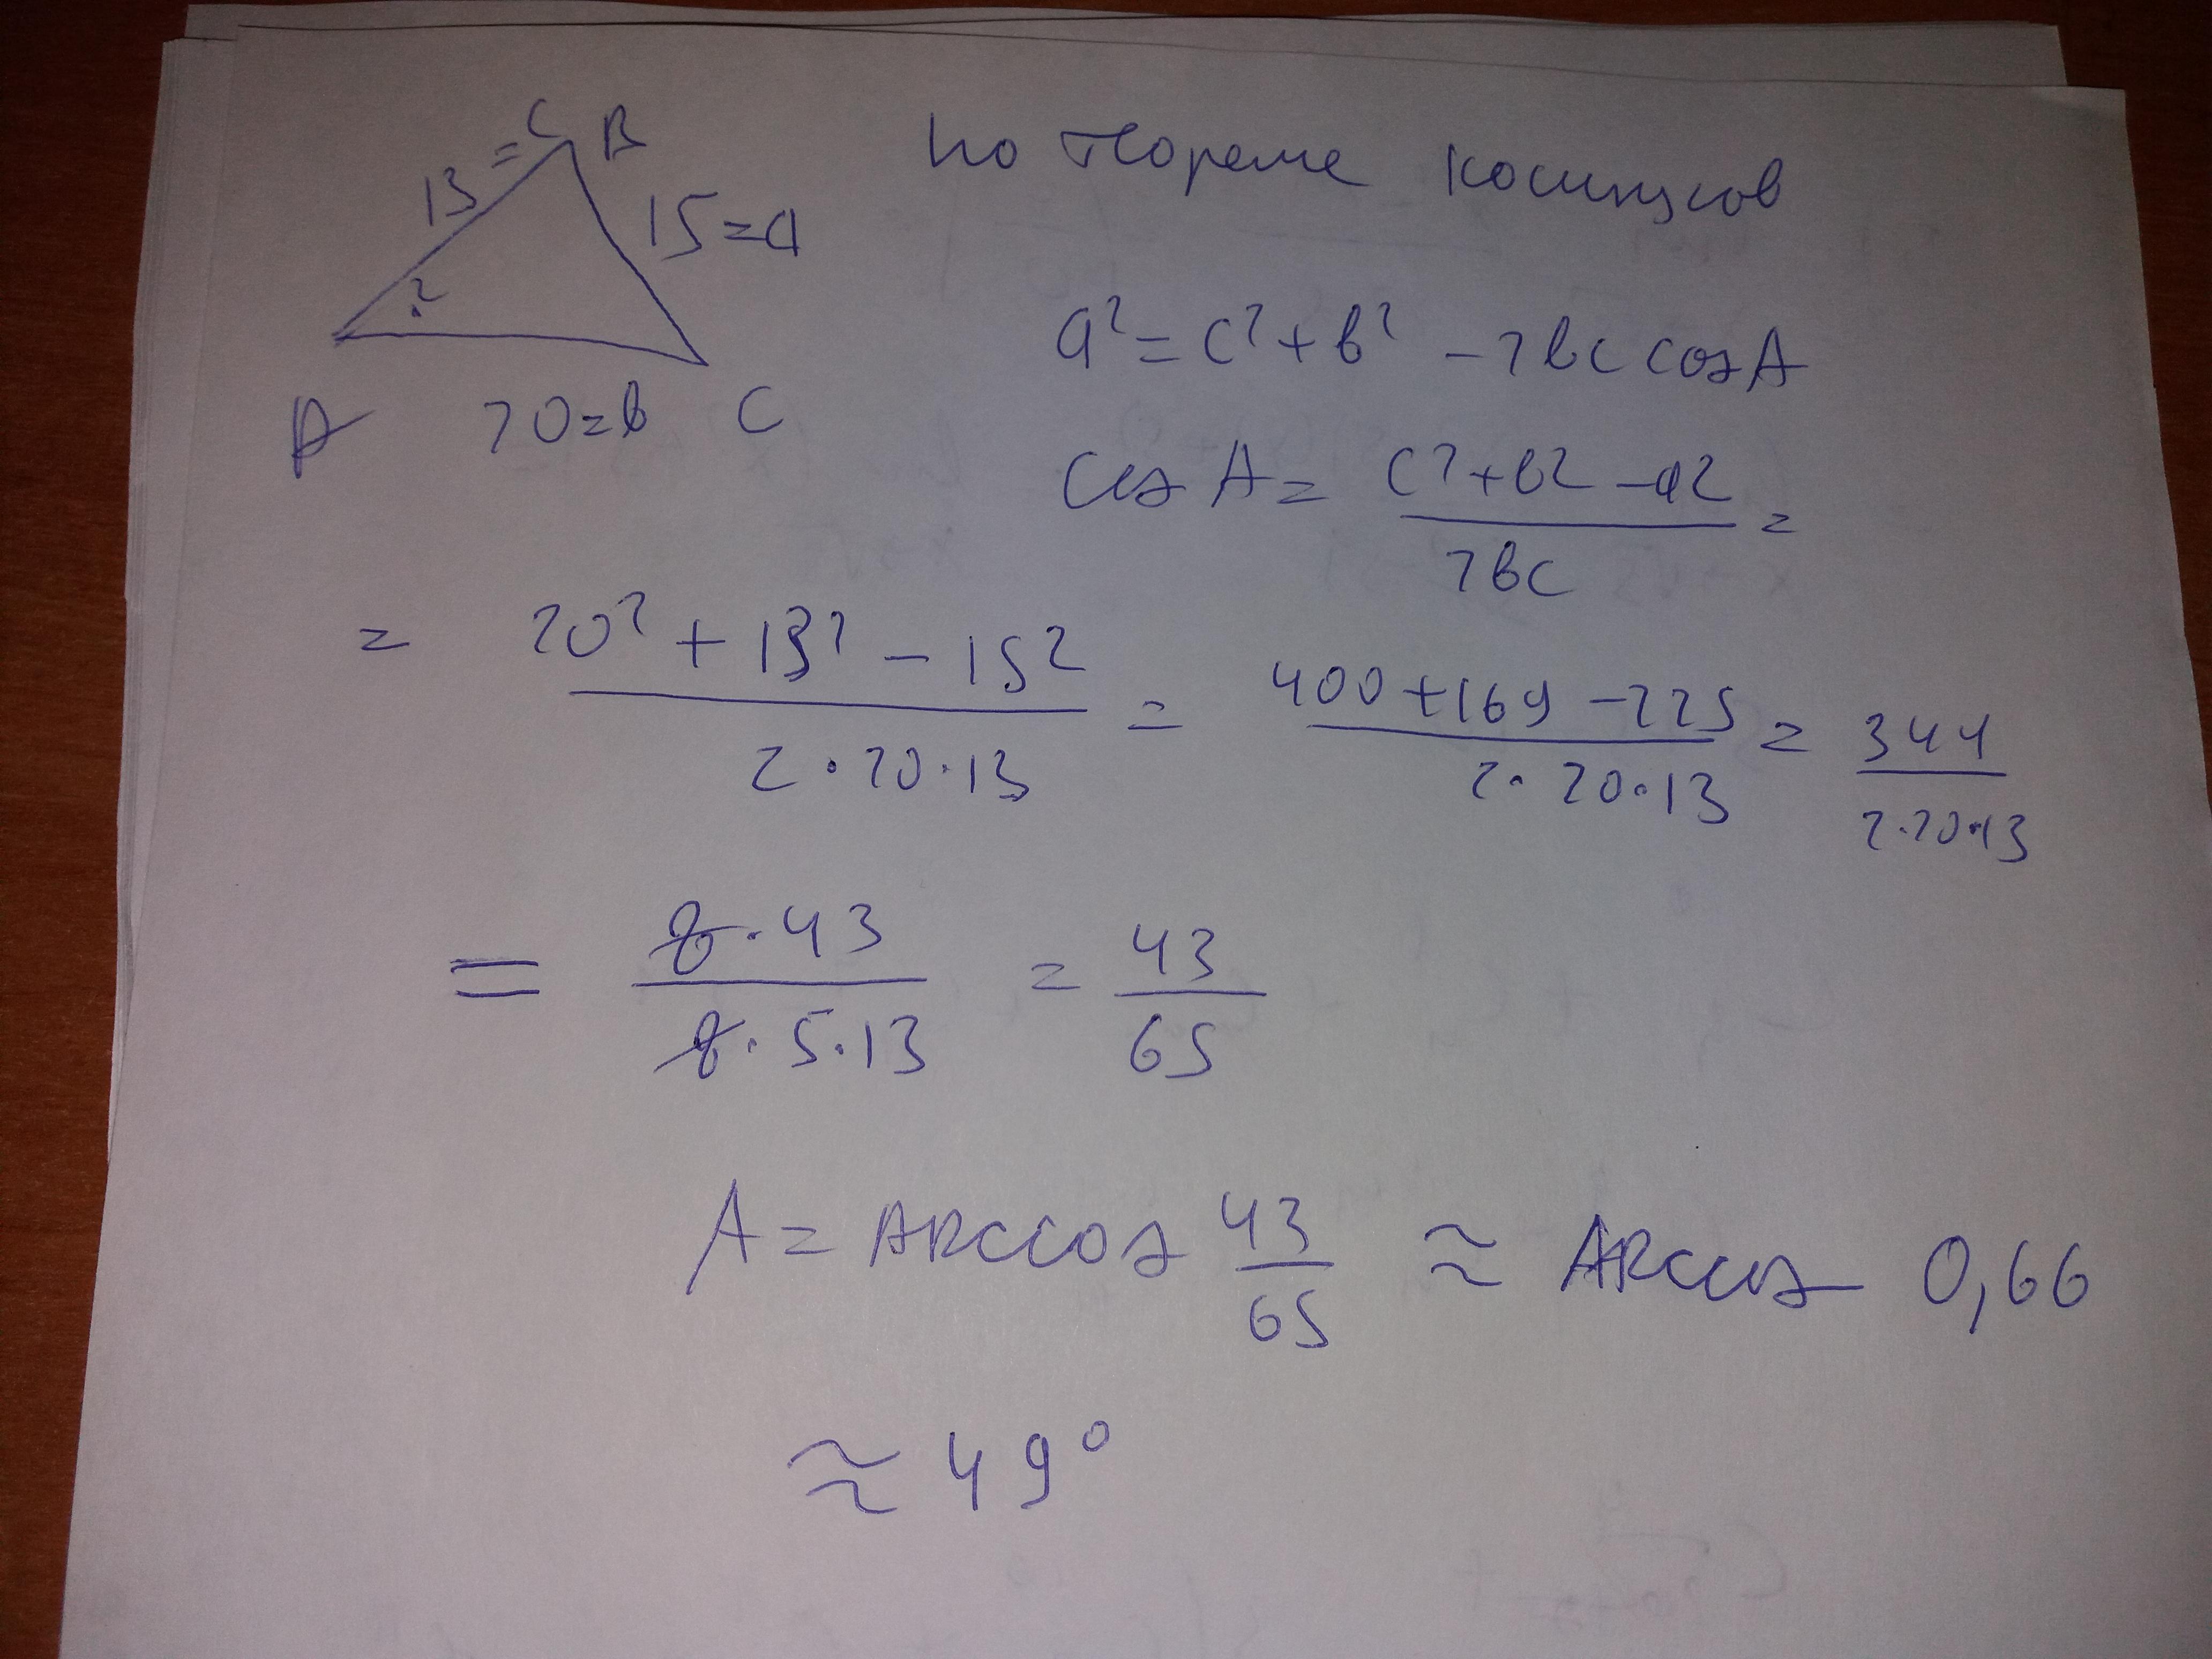 13 = c B
15 = a
?
A 20 = b C
по теореме косинусов
a² = c² + b² - 2bc cos A
cos A = (c² + b² - a²) / 2bc =
= (20² + 13² - 15²) / (2·20·13) = (400 + 169 - 225) / (2·20·13) = 344 / (2·20·13)
= (8·43) / (8·5·13) = 43/65
A = ARccos 43/65 ≈ ARccos 0,66
≈ 49°